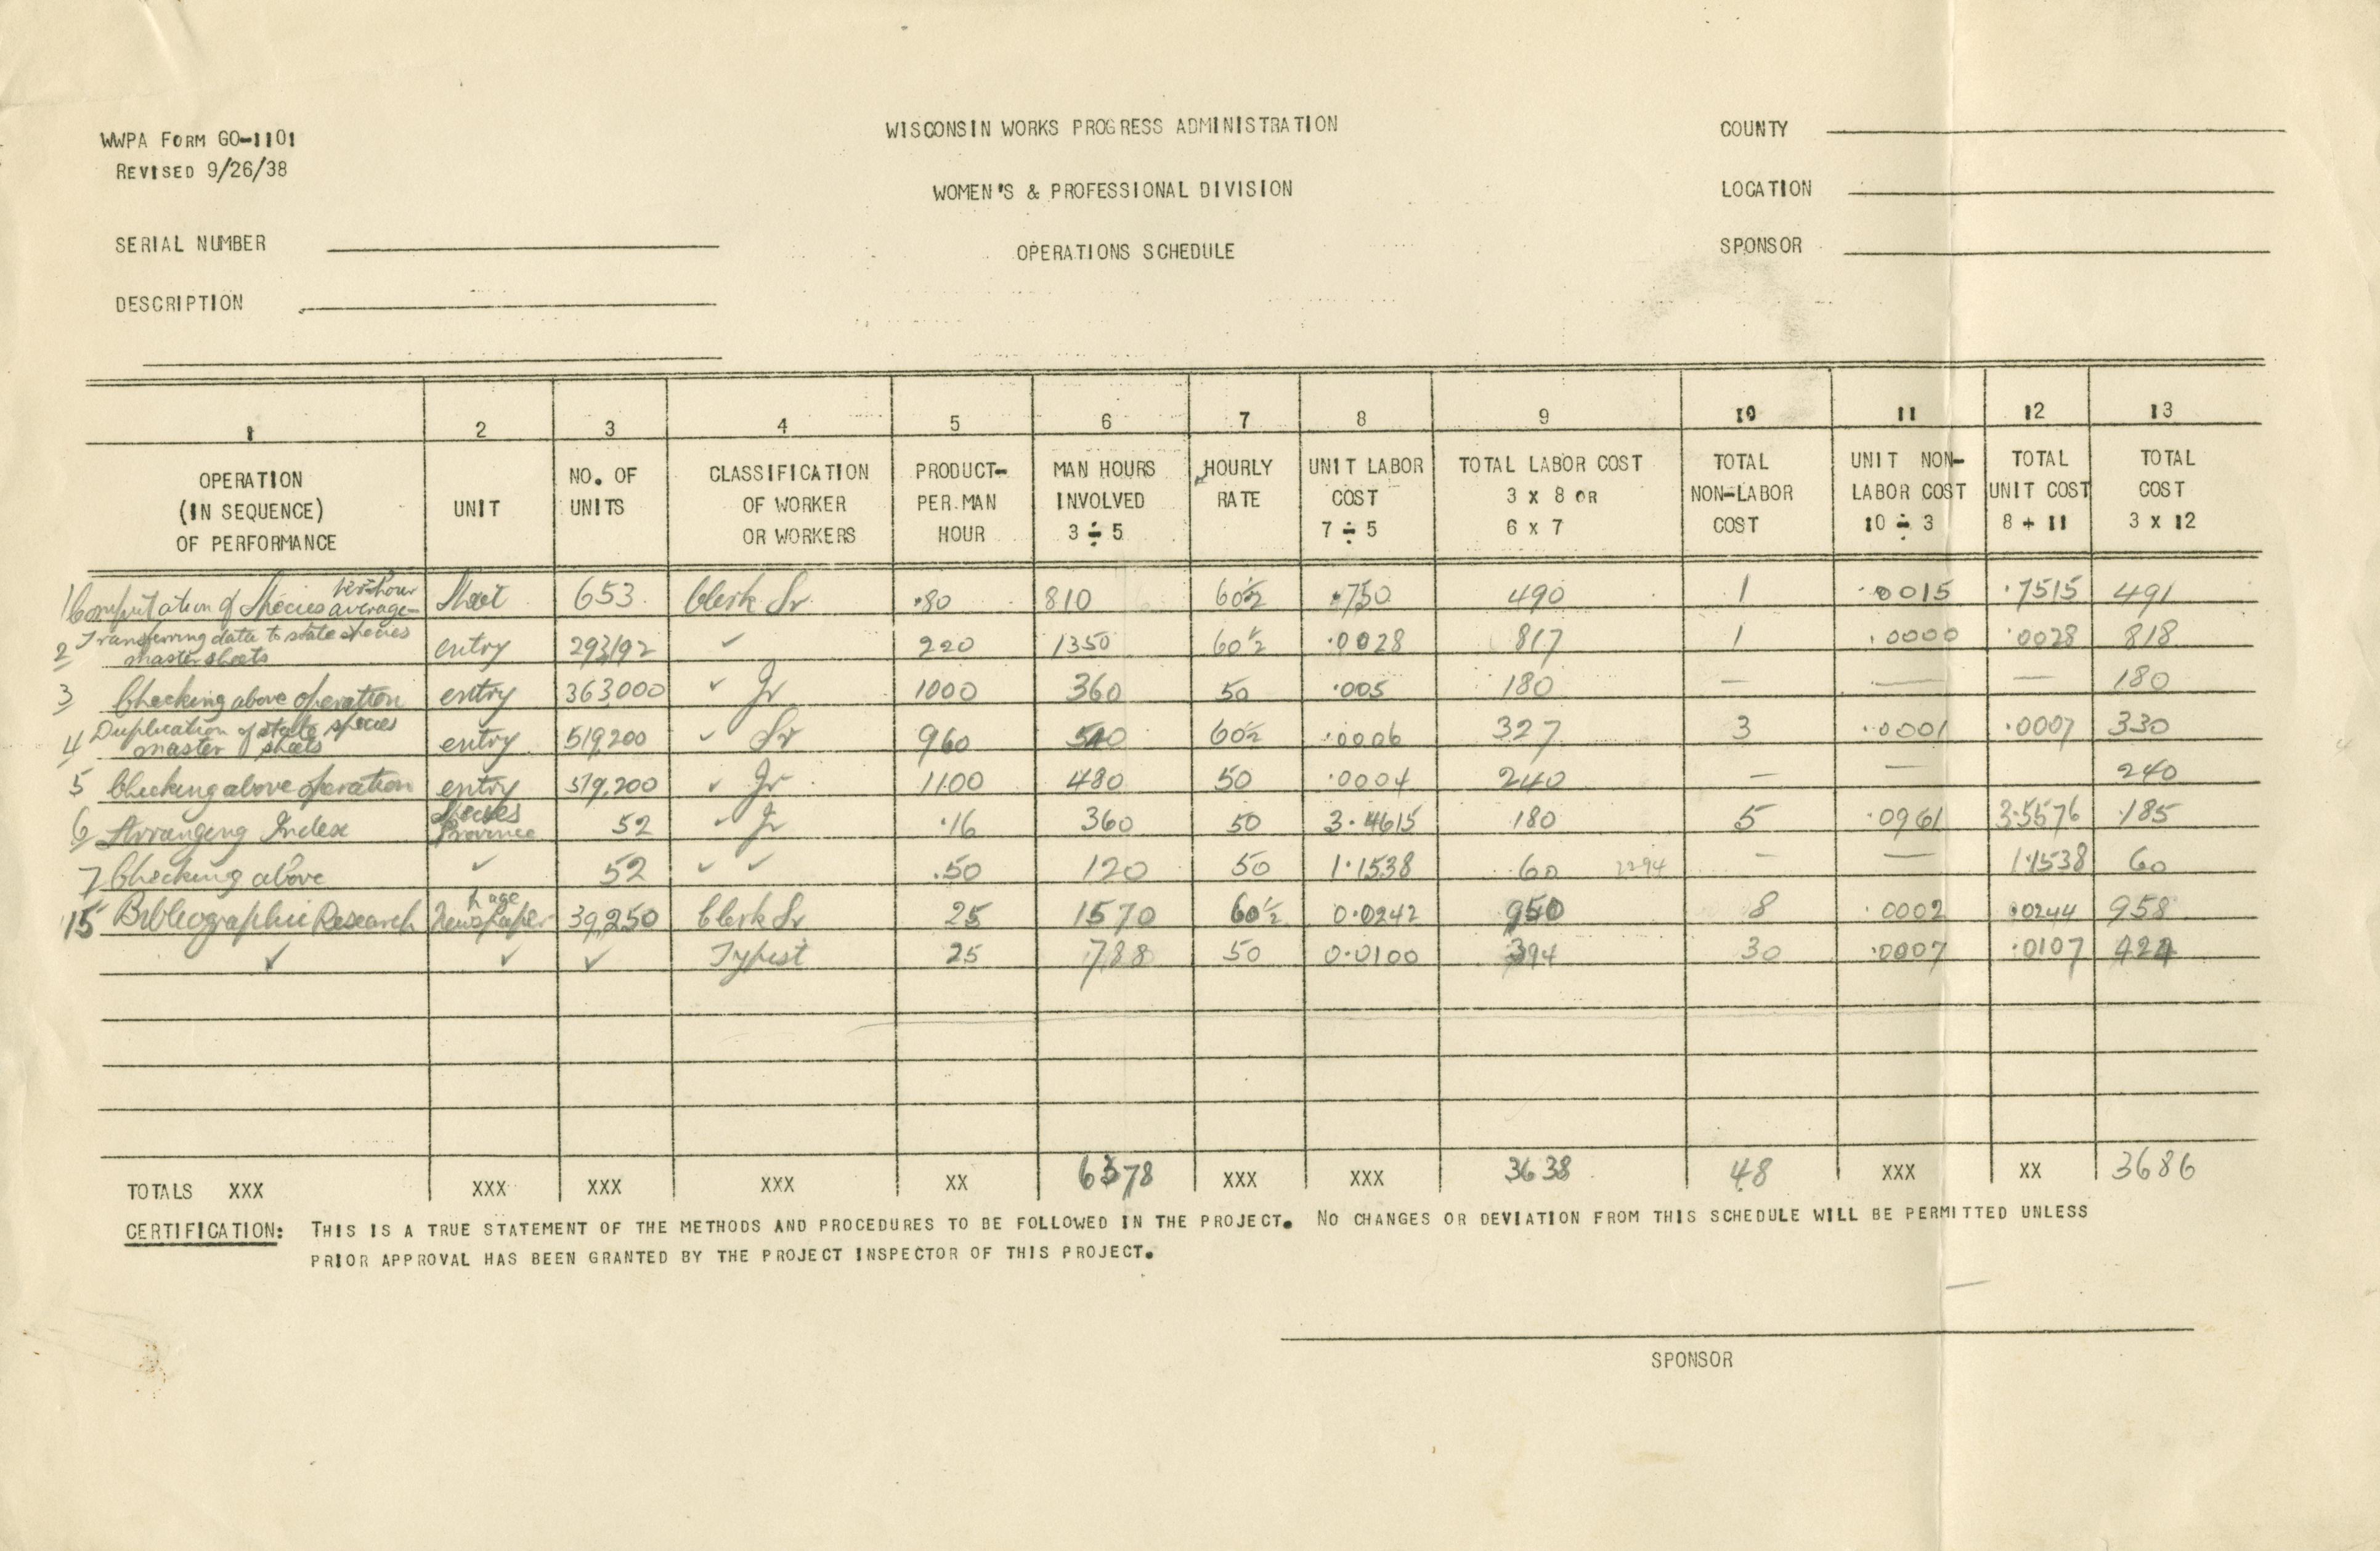 WWPA FORM GO-1101
REVISED 9/26/38
SERIAL NUMBER
DESCRIPTION
WISCONSIN WORKS PROGRESS ADMINISTRATION
WOMEN'S & PROFESSIONAL DIVISION
OPERATIONS SCHEDULE
COUNTY
LOCATION
SPONSOR
1 2 3 4 5 6 7 8 9 10 11 12 13
OPERATION (IN SEQUENCE) OF PERFORMANCE
UNIT
NO. OF UNITS
CLASSIFICATION OF WORKER OR WORKERS
PRODUCT- PER.MAN HOUR
MAN HOURS INVOLVED 3 ÷ 5
HOURLY RATE
UNIT LABOR COST 7 ÷ 5
TOTAL LABOR COST 3 X 8 OR 6 X 7
TOTAL NON-LABOR COST
UNIT NON- LABOR COST 10 ÷ 3
TOTAL UNIT COST 8 + 11
TOTAL COST 3 X 12
1 Computation of Species average- Sheet 653 Clerk Sr .80 810 60½ .750 490 1 .0015 .7515 491
2 Transferring data to state species master sheets entry 293192 ✓ 220 1350 60½ .0028 817 1 .0000 .0028 818
3 Checking above operation entry 363000 ✓ Jr 1000 360 50 .005 180 — — — 180
4 Duplication of state species master sheets entry 519200 ✓ Sr 960 540 60½ .0006 327 3 .0001 .0007 330
5 Checking above operation entry 519,200 ✓ Jr 1100 480 50 .0004 240 — — 240
6 Arranging Index Species Province 52 ✓ Jr .16 360 50 3.4615 180 5 .0961 3.5576 185
7 Checking above ✓ 52 ✓ ✓ .50 120 50 1.1538 60 2294 — — 1.1538 60
15 Bibliographic Research Newspaper page 39,250 Clerk Sr 25 1570 60½ 0.0242 950 8 .0002 .0244 958
✓ ✓ ✓ Typist 25 788 50 0.0100 394 30 .0007 .0107 424
TOTALS XXX XXX XXX XXX XX 6378 XXX XXX 3638 48 XXX XX 3686
CERTIFICATION: THIS IS A TRUE STATEMENT OF THE METHODS AND PROCEDURES TO BE FOLLOWED IN THE PROJECT. NO CHANGES OR DEVIATION FROM THIS SCHEDULE WILL BE PERMITTED UNLESS
PRIOR APPROVAL HAS BEEN GRANTED BY THE PROJECT INSPECTOR OF THIS PROJECT.
SPONSOR